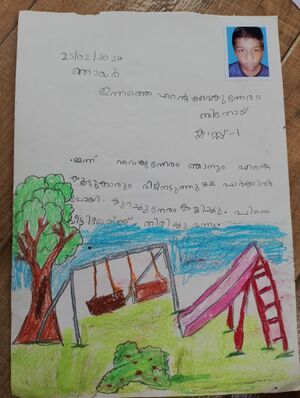 25/02/2024
ഞായർ
ഇന്നത്തെ എന്റെ വൈകുന്നേരം
ബിനോയ്
ക്ലാസ്സ് -1
ഇന്ന് വൈകുന്നേരം ഞാനും എന്റെ
കൂട്ടുകാരും വീടിനടുത്തുള്ള പാർക്കിൽ
പോയി. കുറച്ചുനേരം കളിച്ചും പിന്നെ
വീട്ടിലേയ്ക്ക് തിരിച്ചുവന്നു.